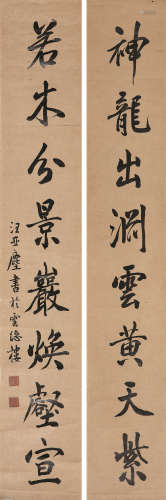 神龍出澗雲黃天紫
若木分景巖煥壑宣
汪亞塵書於雲隱樓